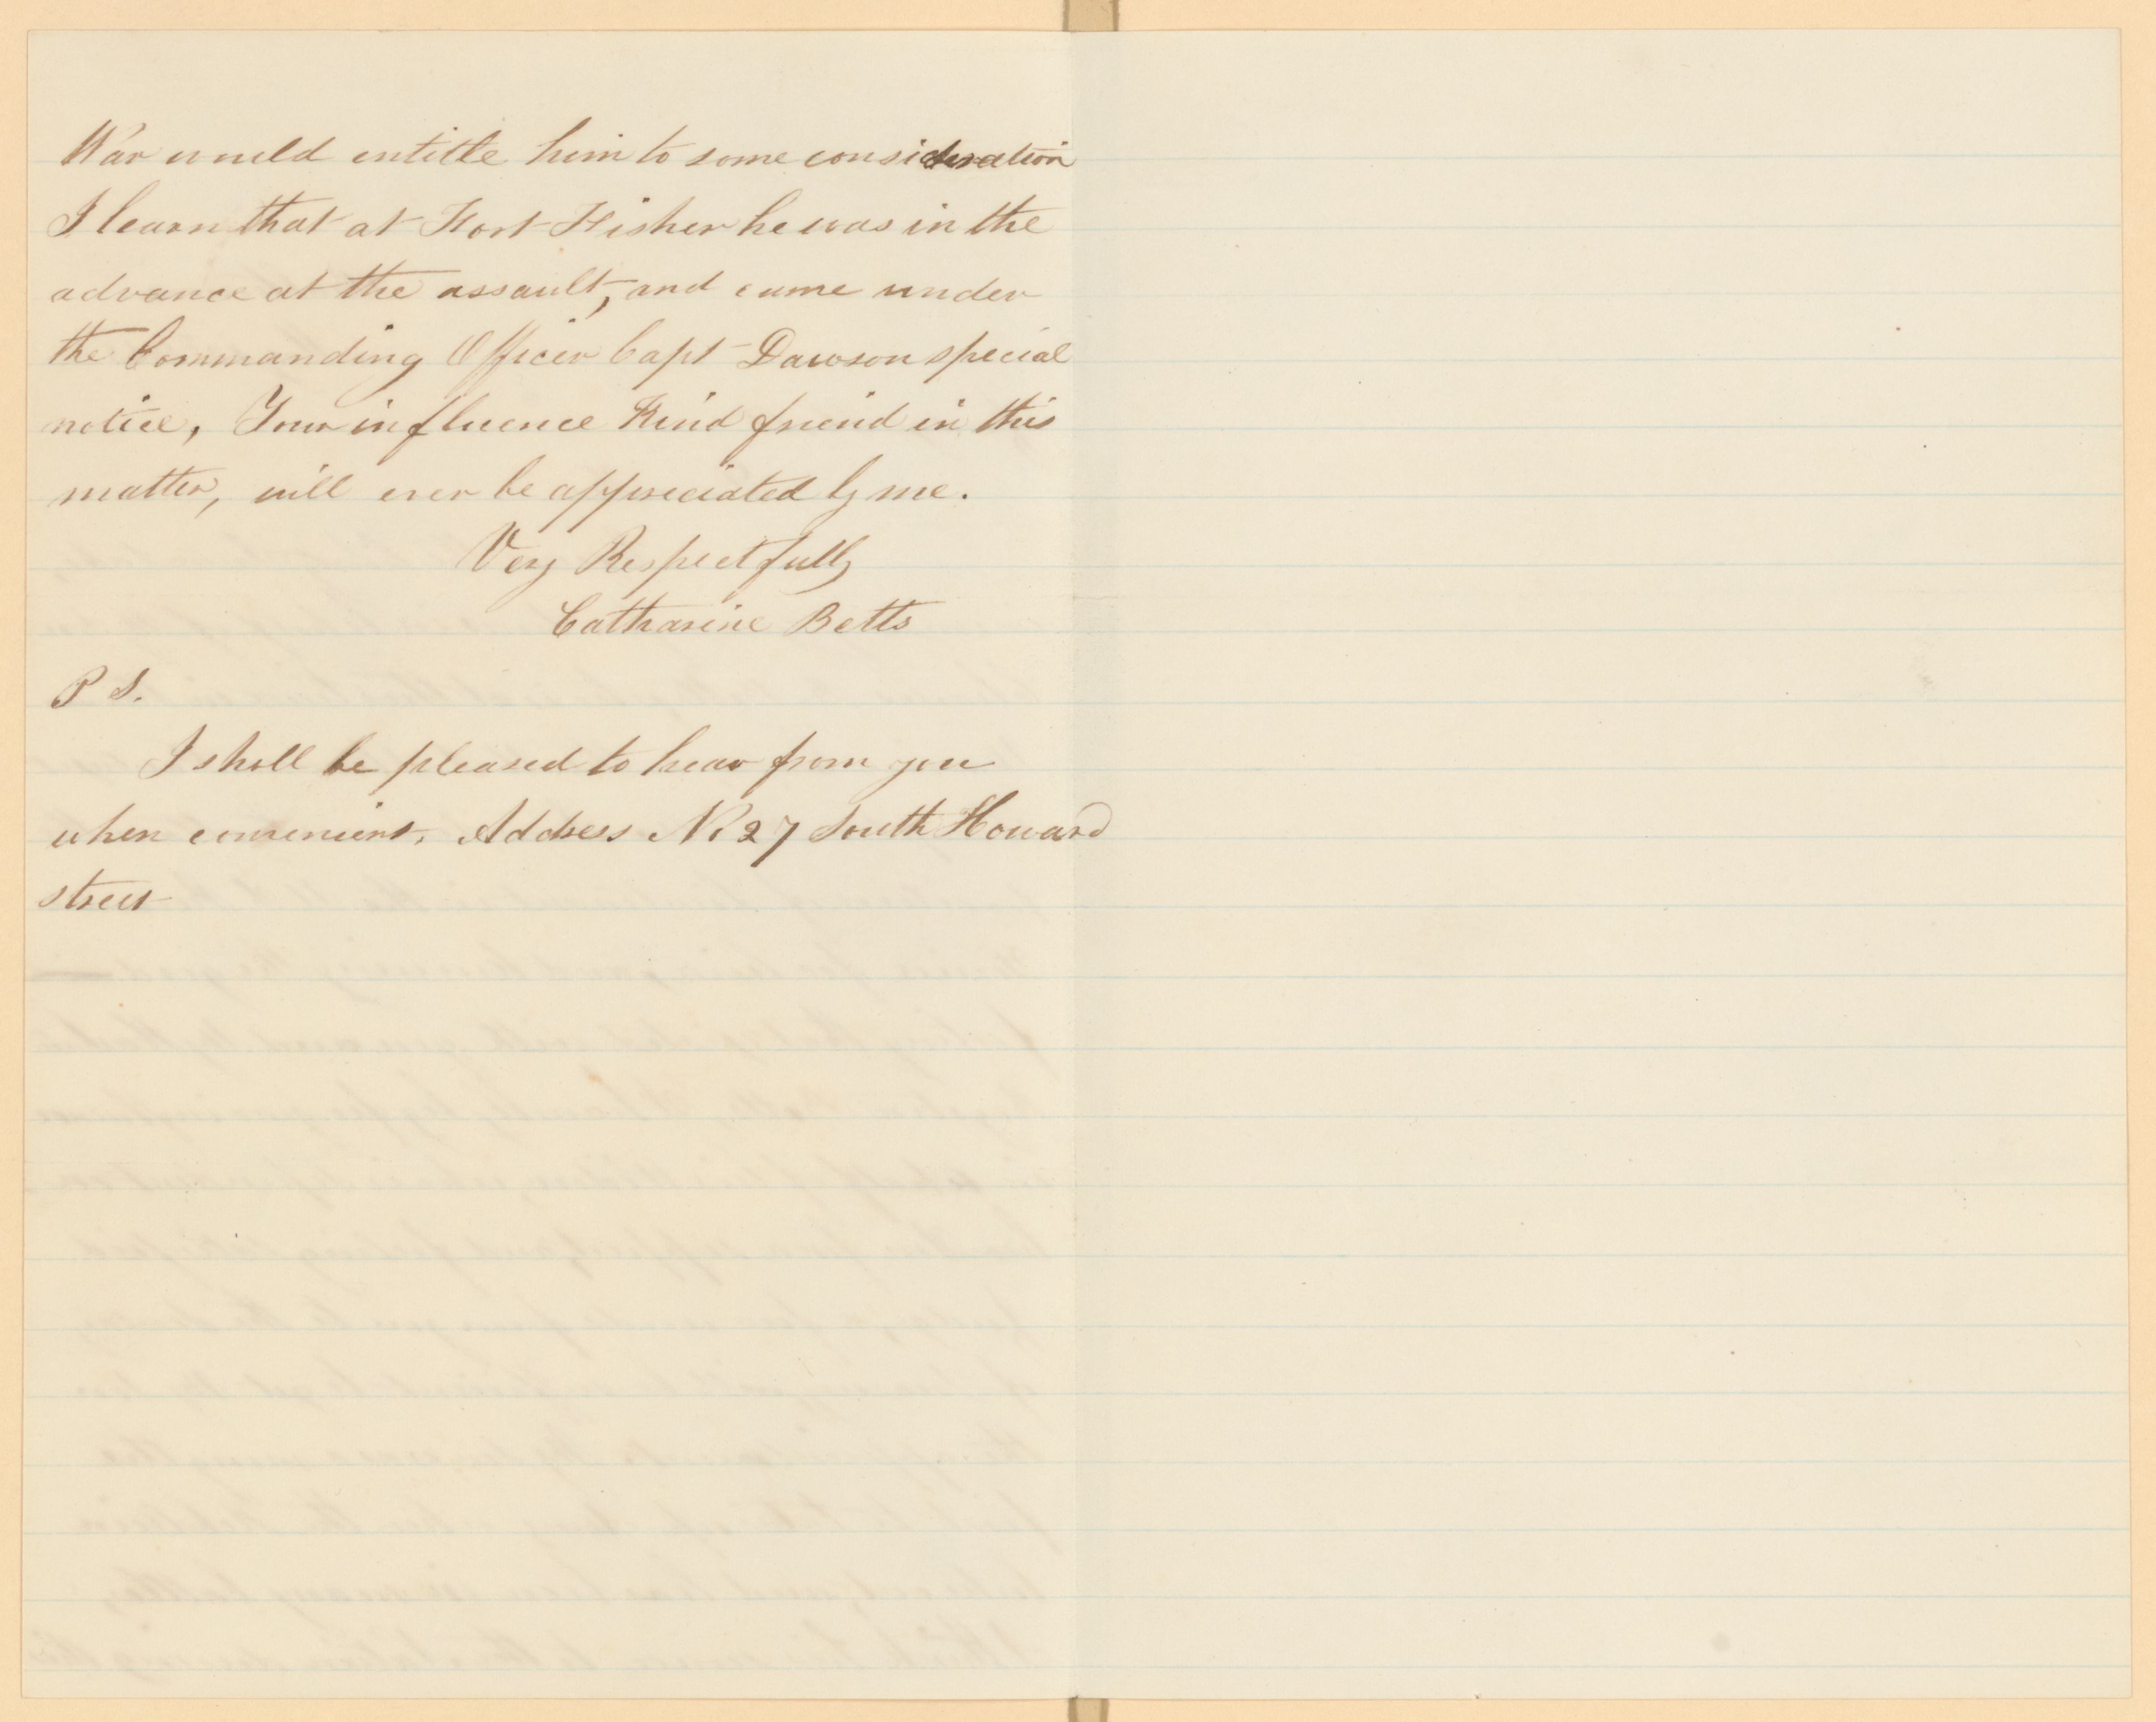 War would entitle him to some consideration
I learn that at Fort Fisher he was in the
advance at the assault, and came under
the Commanding Officer Capt Dawson special
notice, Your influence Kind friend in this
matter, will ever be appreciated by me.
Very Respectfully
Catharine Betts
P S.
I shall be pleased to hear from you
when convenient. Address No 27 South Howard
street